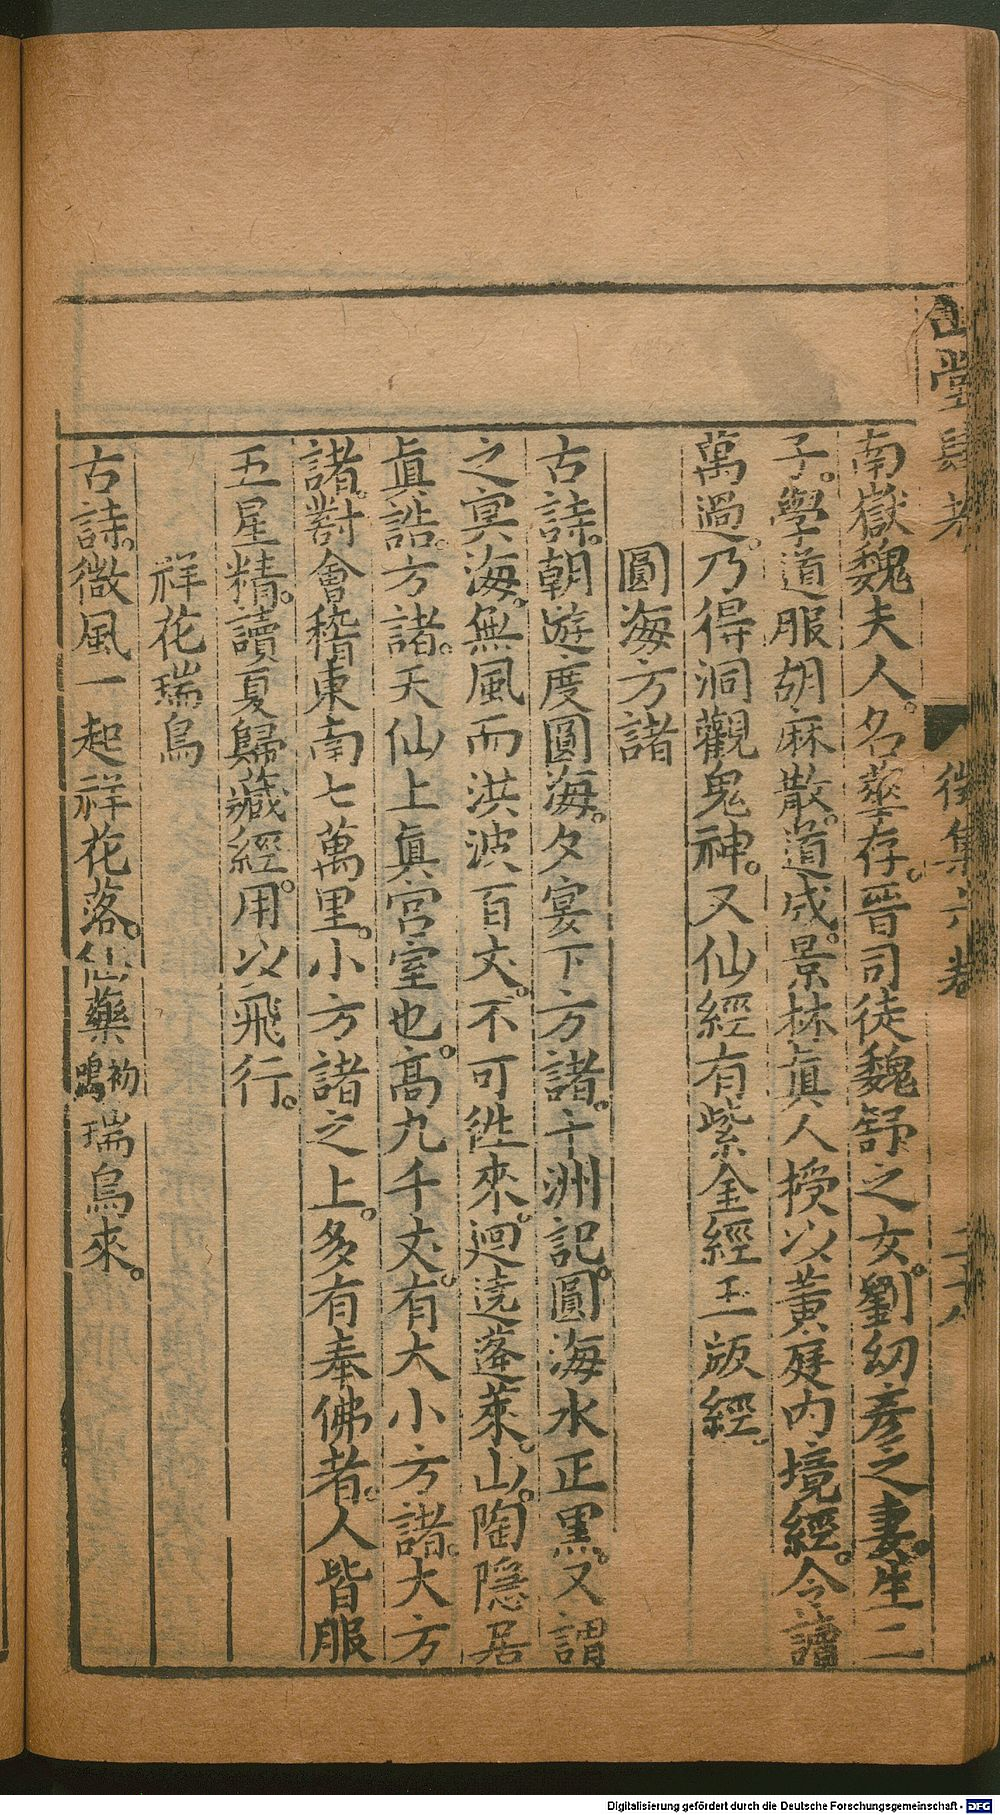 山堂肆考 徵集六卷 二十八
南嶽魏夫人。名華存。晉司徒魏舒之女。劉幼彥之妻。生二
子。學道服胡麻散。道成。景林眞人授以黃庭內境經。令讀
萬過。乃得洞觀鬼神。又仙經有紫金經玉版經。
圓海方諸
古詩。朝遊度圓海。夕宴下方諸。十洲記。圓海水正黑。又謂
之㝠海。無風而洪波百丈。不可徃來。廻遶蓬萊。山。陶隱居
眞誥。方諸。天仙上眞宫室也。高九千丈。有大小方諸。大方
諸。對會稽東南七萬里。小方諸之上。多有奉佛者。人皆服
五星精。讀夏歸藏經。用以飛行。
祥花瑞鳥
古詩。微風一起祥花落。仙藥初鳴瑞鳥來。
Digitalisierung gefördert durch die Deutsche Forschungsgemeinschaft - DFG